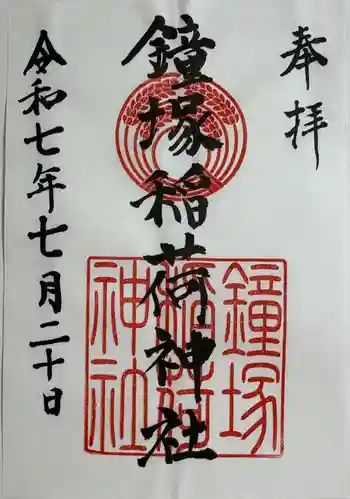 奉拝
鐘塚稲荷神社
令和七年七月二十日
鐘塚
稲荷
神社